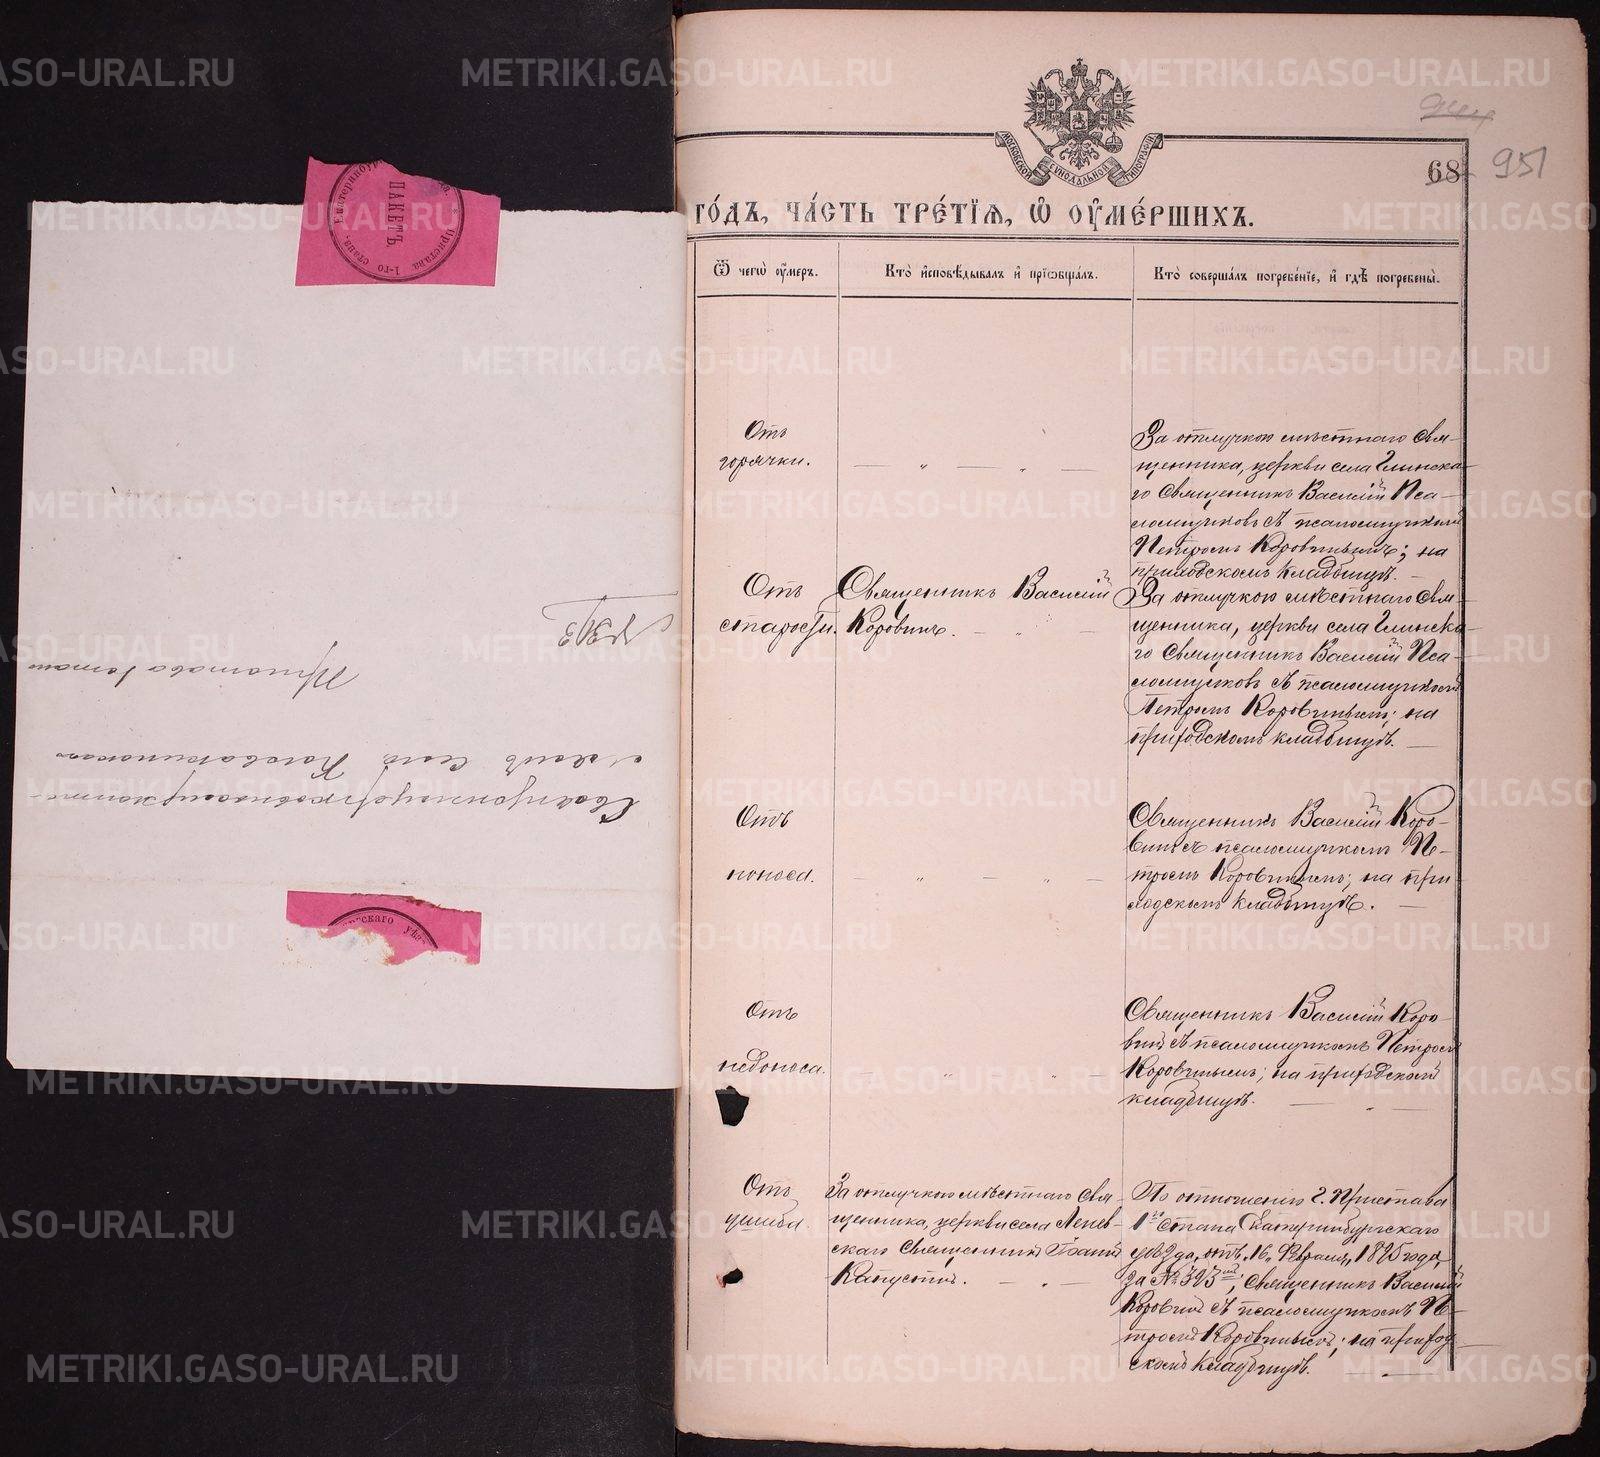 METRIKI.GASO-URAL.RU
Екатеринбур
ПАКЕТЪ
Пристава 1-го стана,
№ 323
Пристава 1 стана
Священноцерковнослужите-
лямъ села
скаго уѣз
МОСКОВСКОЙ СѴНОДАЛЬНОЙ ТИПОГРАФІИ
944
68
951
ГО́ДЪ, ЧА́СТЬ ТРЕ́ТІѦ, Ѽ ОУ҆МЕ́РШИХЪ.
Ѿ чегѡ̀ оу҆́меръ.
Кто̀ и҆сповѣ́дывалъ и҆ прїѡбща́лъ.
Кто̀ соверша́лъ погребе́нїе, и҆ гдѣ̀ погребены̀.
Отъ
горячки.
За отлучкою мѣстнаго свя-
щенника, церкви села Глинска-
го Священникъ Василій Пса-
ломщиковъ съ псаломщикомъ
Петромъ Коровинымъ; на
приходскомъ кладбищѣ.
Отъ
старости.
Священникъ Василій
Коровинъ.
За отлучкою мѣстнаго свя-
щенника, церкви села Глинска-
го Священникъ Василій Пса-
ломщиковъ съ псаломщикомъ
Петромъ Коровинымъ; на
приходскомъ кладбищѣ.
Отъ
поноса.
Священникъ Василій Коро-
винъ съ псаломщикомъ Пе-
тромъ Коровинымъ; на при-
ходскомъ кладбищѣ.
Отъ
недоноса.
Священникъ Василій Коро-
винъ съ псаломщикомъ Петромъ
Коровинымъ; на приходскомъ
кладбищѣ.
Отъ
ушиба.
За отлучкою мѣстнаго свя-
щенника, церкви села Леннев-
скаго Священникъ Іоаннъ
Капустинъ.
По отношенію г. Пристава
1го стана Екатеринбургскаго
уѣзда, отъ 16 Февраля, 1895 года,
за № 323мъ, Священникъ Василій
Коровинъ съ псаломщикомъ Пе-
тромъ Коровинымъ; на приход-
скомъ кладбищѣ.